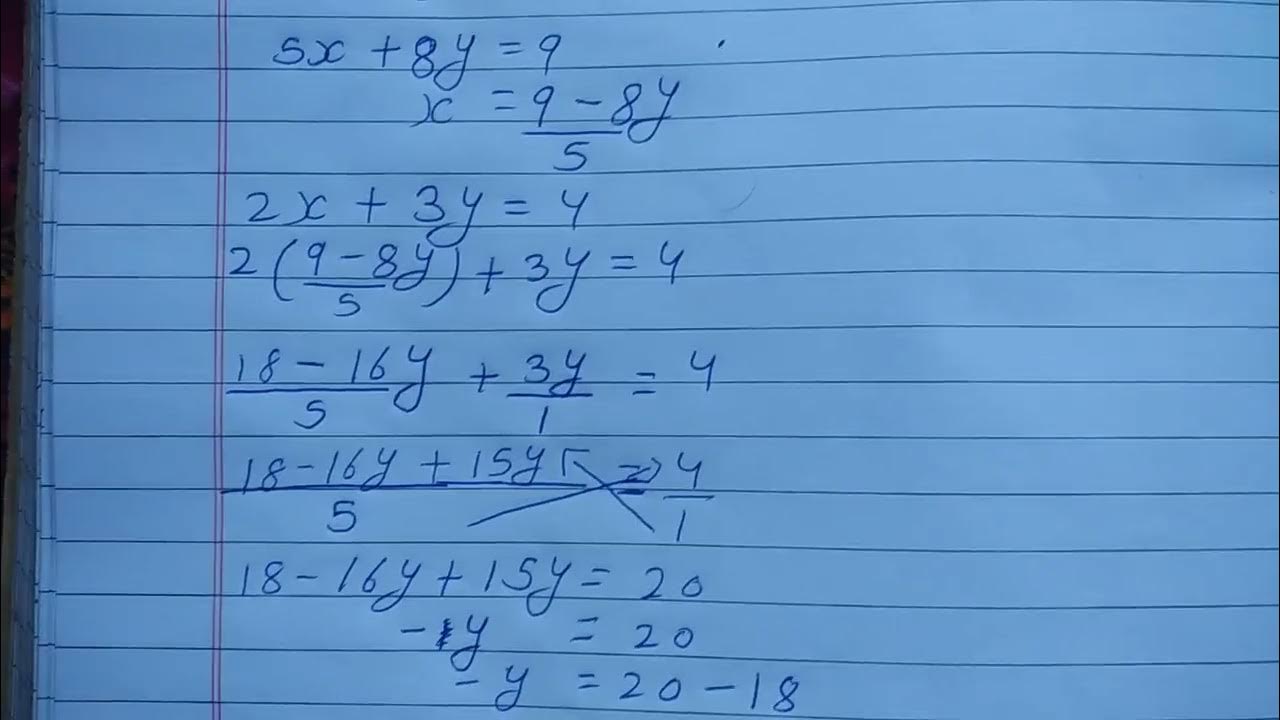 5x + 8y = 9
x = 9 - 8y
5
2x + 3y = 4
2(9 - 8y) + 3y = 4
5
18 - 16y + 3y = 4
5 1
18 - 16y + 15y = 4
5 1
18 - 16y + 15y = 20
- y = 20
- y = 20 - 18